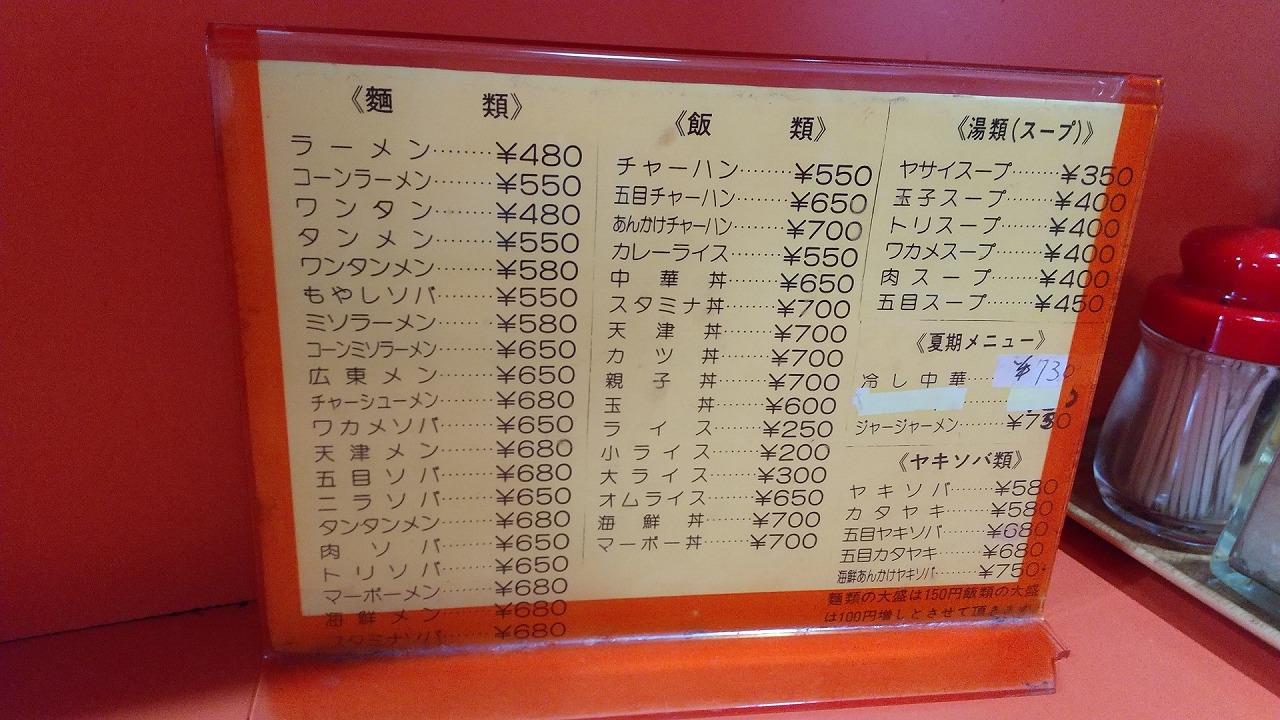 《麺類》
ラーメン………¥480
コーンラーメン………¥550
ワンタン………¥480
タンメン………¥550
ワンタンメン………¥580
もやしソバ………¥550
ミソラーメン………¥580
コーンミソラーメン………¥650
広東メン………¥650
チャーシューメン………¥680
ワカメソバ………¥650
天津メン………¥680
五目ソバ………¥680
ニラソバ………¥650
タンタンメン………¥680
肉ソバ………¥650
トリソバ………¥650
マーボーメン………¥680
海鮮メン………¥680
スタミナソバ………¥680
《飯類》
チャーハン………¥550
五目チャーハン………¥650
あんかけチャーハン………¥700
カレーライス………¥550
中華丼………¥650
スタミナ丼………¥700
天津丼………¥700
カツ丼………¥700
親子丼………¥700
玉丼………¥600
ライス………¥250
小ライス………¥200
大ライス………¥300
オムライス………¥650
海鮮丼………¥700
マーボー丼………¥700
《湯類(スープ)》
ヤサイスープ………¥350
玉子スープ………¥400
トリスープ………¥400
ワカメスープ………¥400
肉スープ………¥400
五目スープ………¥450
《夏期メニュー》
冷し中華………¥730
ジャージャーメン………¥730
《ヤキソバ類》
ヤキソバ………¥580
カタヤキ………¥580
五目ヤキソバ………¥680
五目カタヤキ………¥680
海鮮あんかけヤキソバ………¥750
麺類の大盛は150円飯類の大盛
は100円増しとさせて頂きます